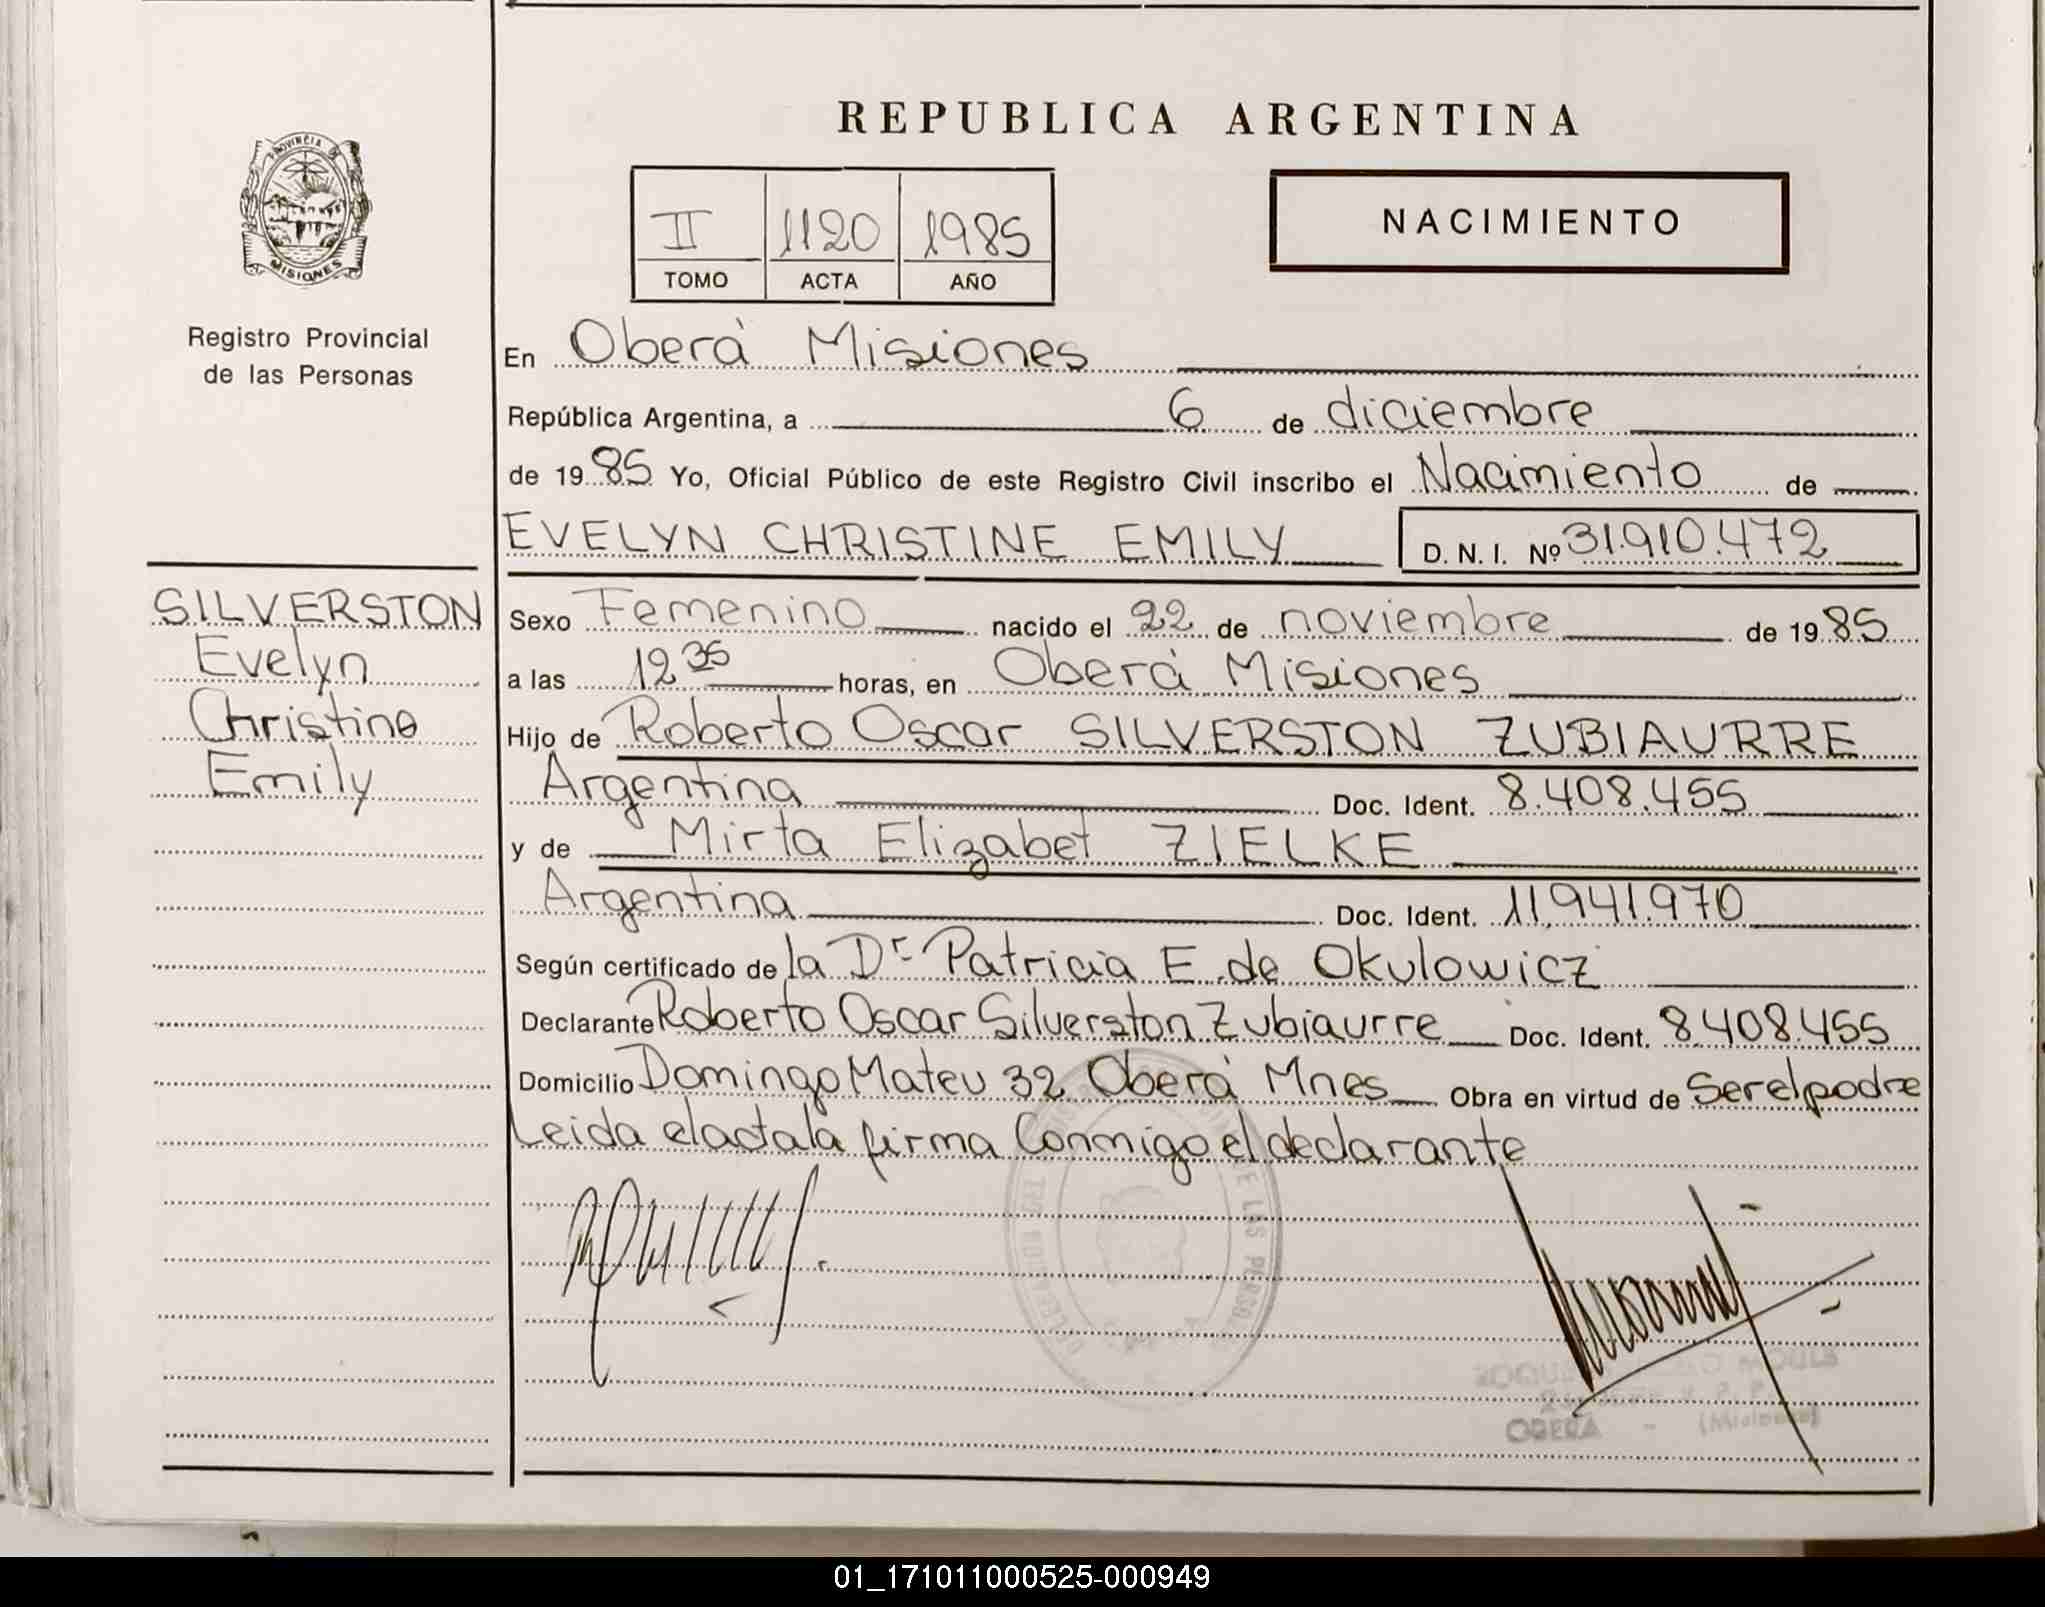 REPUBLICA ARGENTINA
PROVINCIA DE
MISIONES
II 1120 1985
TOMO ACTA AÑO
NACIMIENTO
Registro Provincial
de las Personas
En Oberá Misiones
República Argentina, a 6 de diciembre
de 19 85 Yo, Oficial Público de este Registro Civil inscribo el Nacimiento de
EVELYN CHRISTINE EMILY D. N. I. Nº 31.910.472
SILVERSTON
Evelyn
Christine
Emily
Sexo Femenino nacido el 22 de noviembre de 19 85
a las 12 35 horas, en Oberá Misiones
Hijo de Roberto Oscar SILVERSTON ZUBIAURRE
Argentina Doc. Ident. 8.408.455
y de Mirta Elizabet ZIELKE
Argentina Doc. Ident. 11.941.970
Según certificado de la Dr Patricia E. de Okulowicz
Declarante Roberto Oscar Silverston Zubiaurre Doc. Ident. 8.408.455
Domicilio Domingo Mateu 32 Oberá Mnes Obra en virtud de Ser el padre
Leida el acta la firma Conmigo el declarante
DE LAS PERSO
OBERA - (Misiones)
01_171011000525-000949